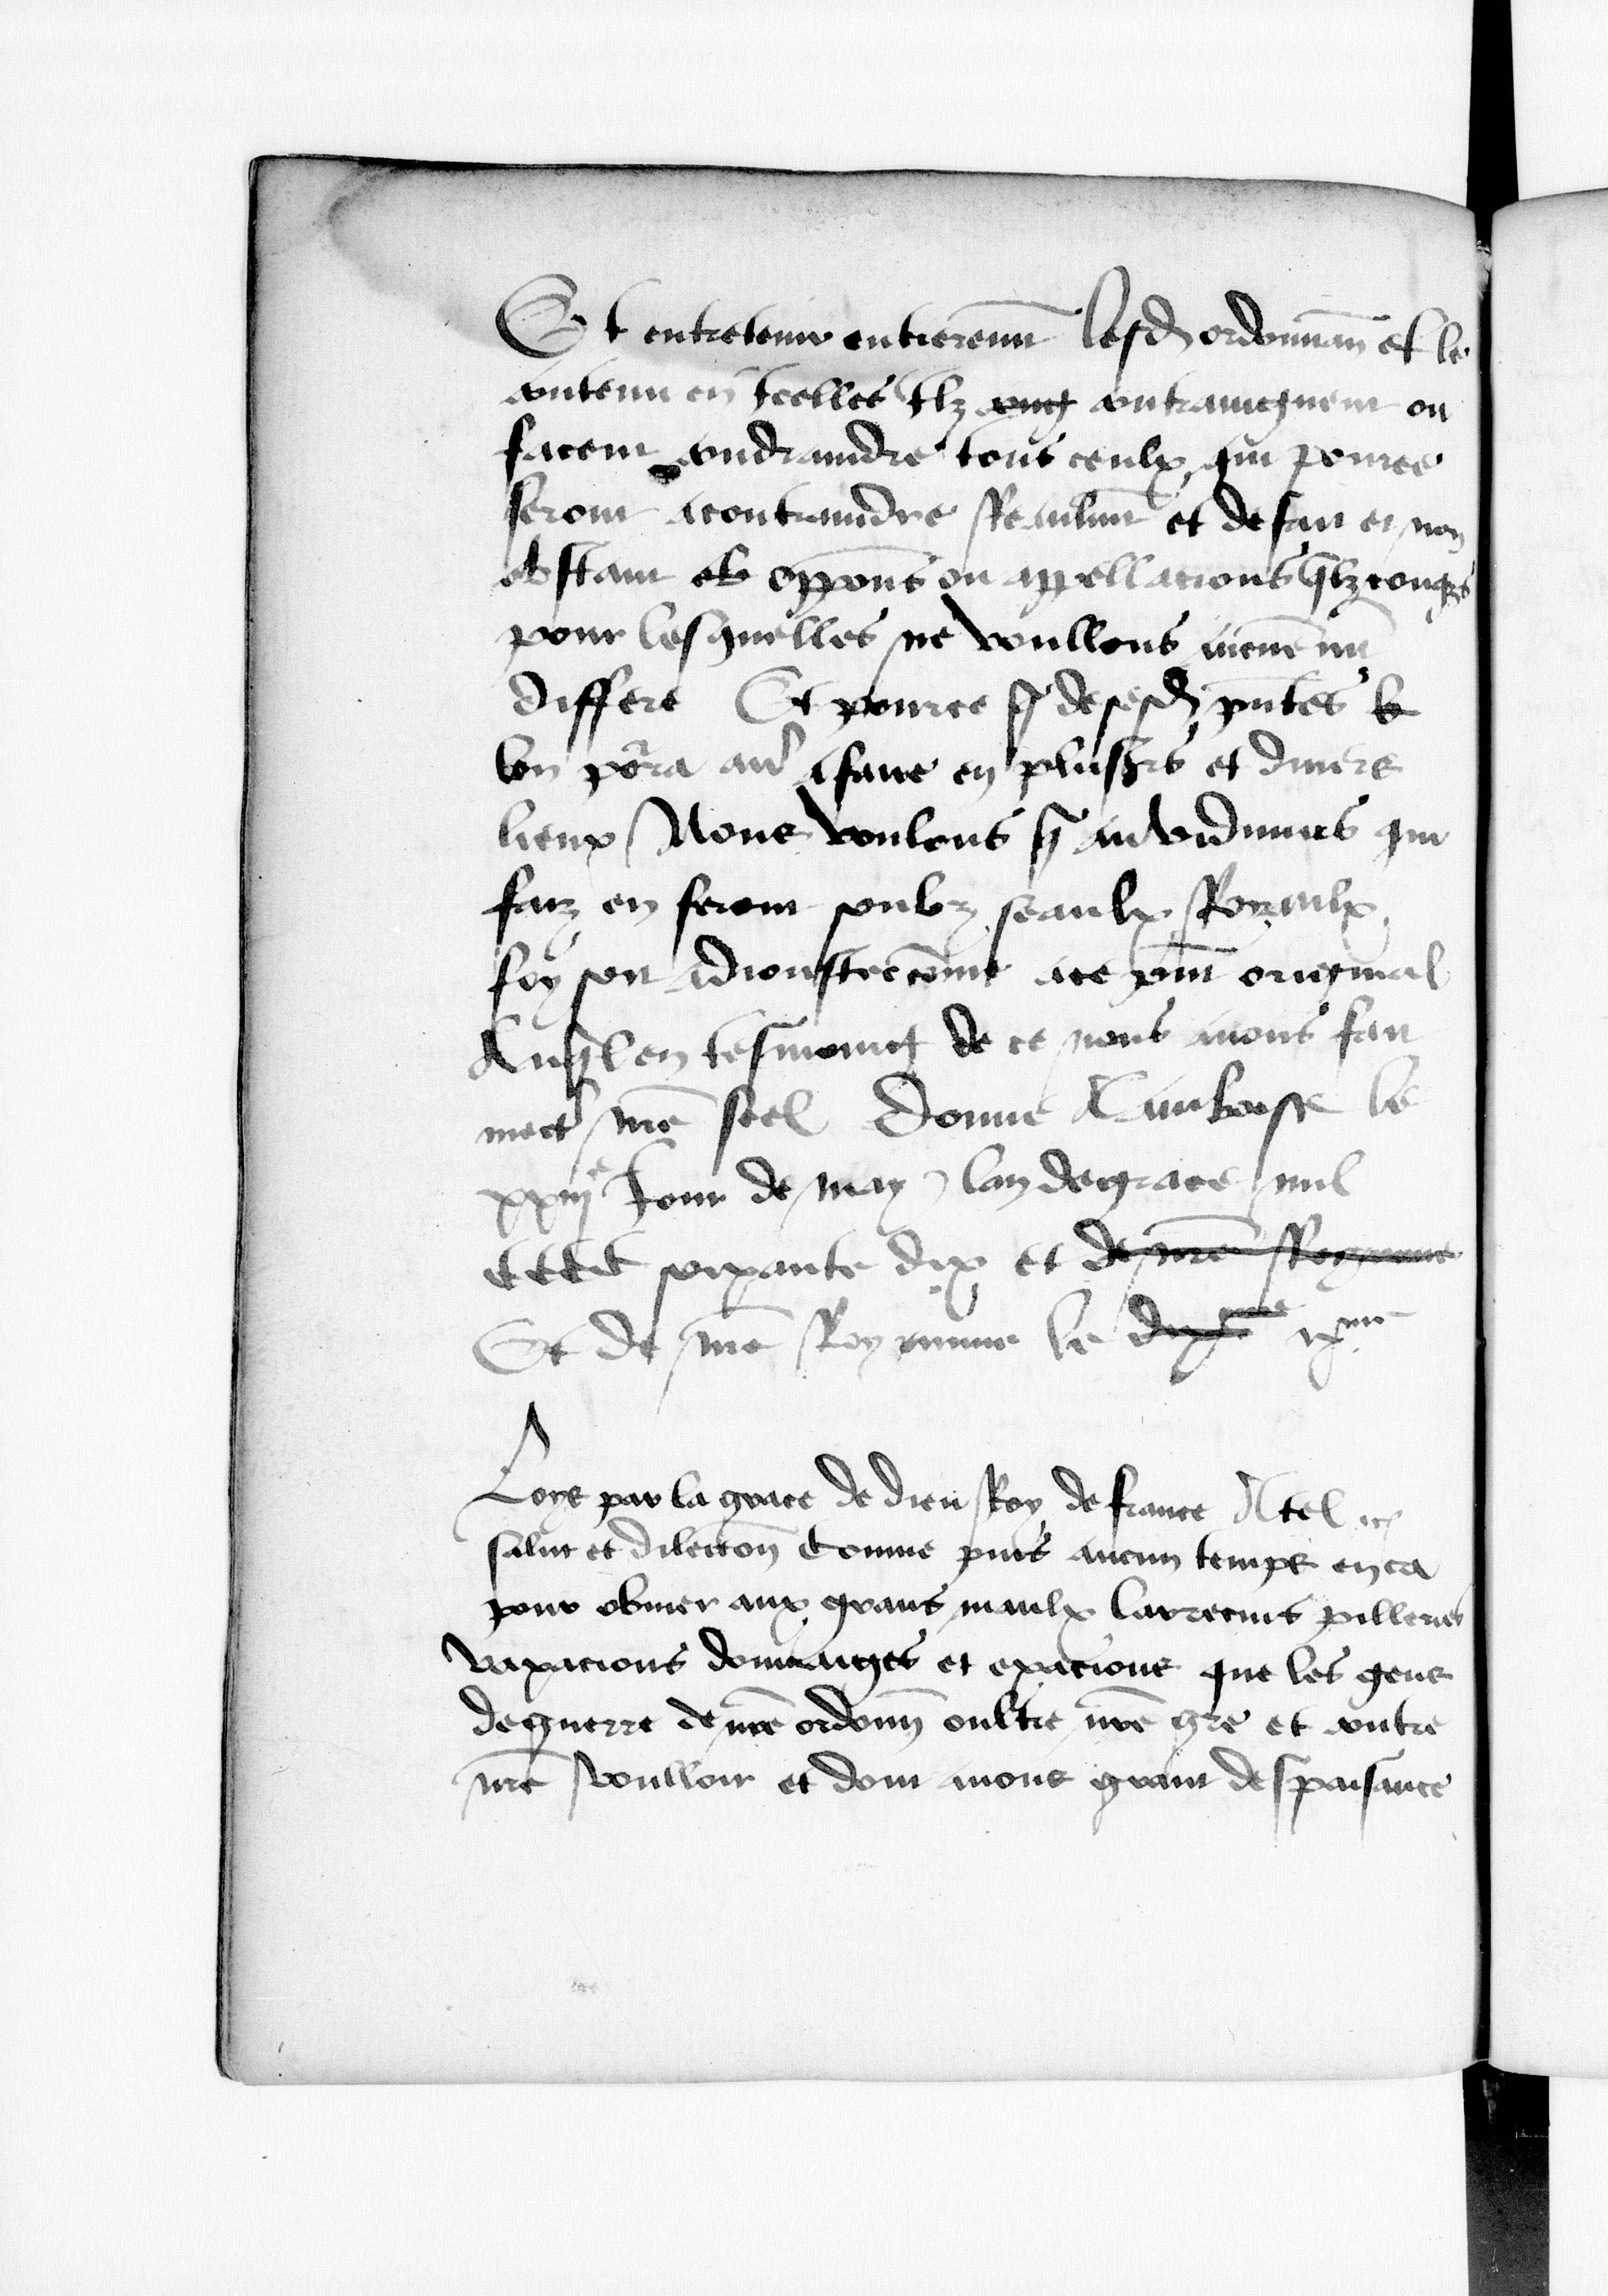 Et entretenir entieremt lesd ordonnan et le
contenu en icelles Ilz contraignent ou
facent contraindre tous ceulx qui pource
seront acontraindre Reaulmt et defait et non
obstant oppons ou appellations qlzconqs
pour lesquelles ne voullons
differe Et pource q de sesd pntes
lon pora avr afaire en plusrs et divers
lieux Nous voulons q au vidimus qui
faiz en seront soubz seaulx Royaulx
foy soit adjoustee comme ace pnt original
Auql en tesmoing de ce nous avons fait
mectr nre seel Donne A Amboise le
xxiije Jour de may lan de grace mil
CCCC soixante dix et de nre Regne
Et de nre Roy aume le dixme ixme
Loys par la grace de dieu Roy de france A tel etc
salut et dilection Comme puis aucun temps enca
pour obvier aux grans maulx larrecins pilleries
vexacions dommaiges et exacions que les gens
de guerre de nre ordonn oultre nre gre et contre
nre voulloir et dont avons grant desplaisance